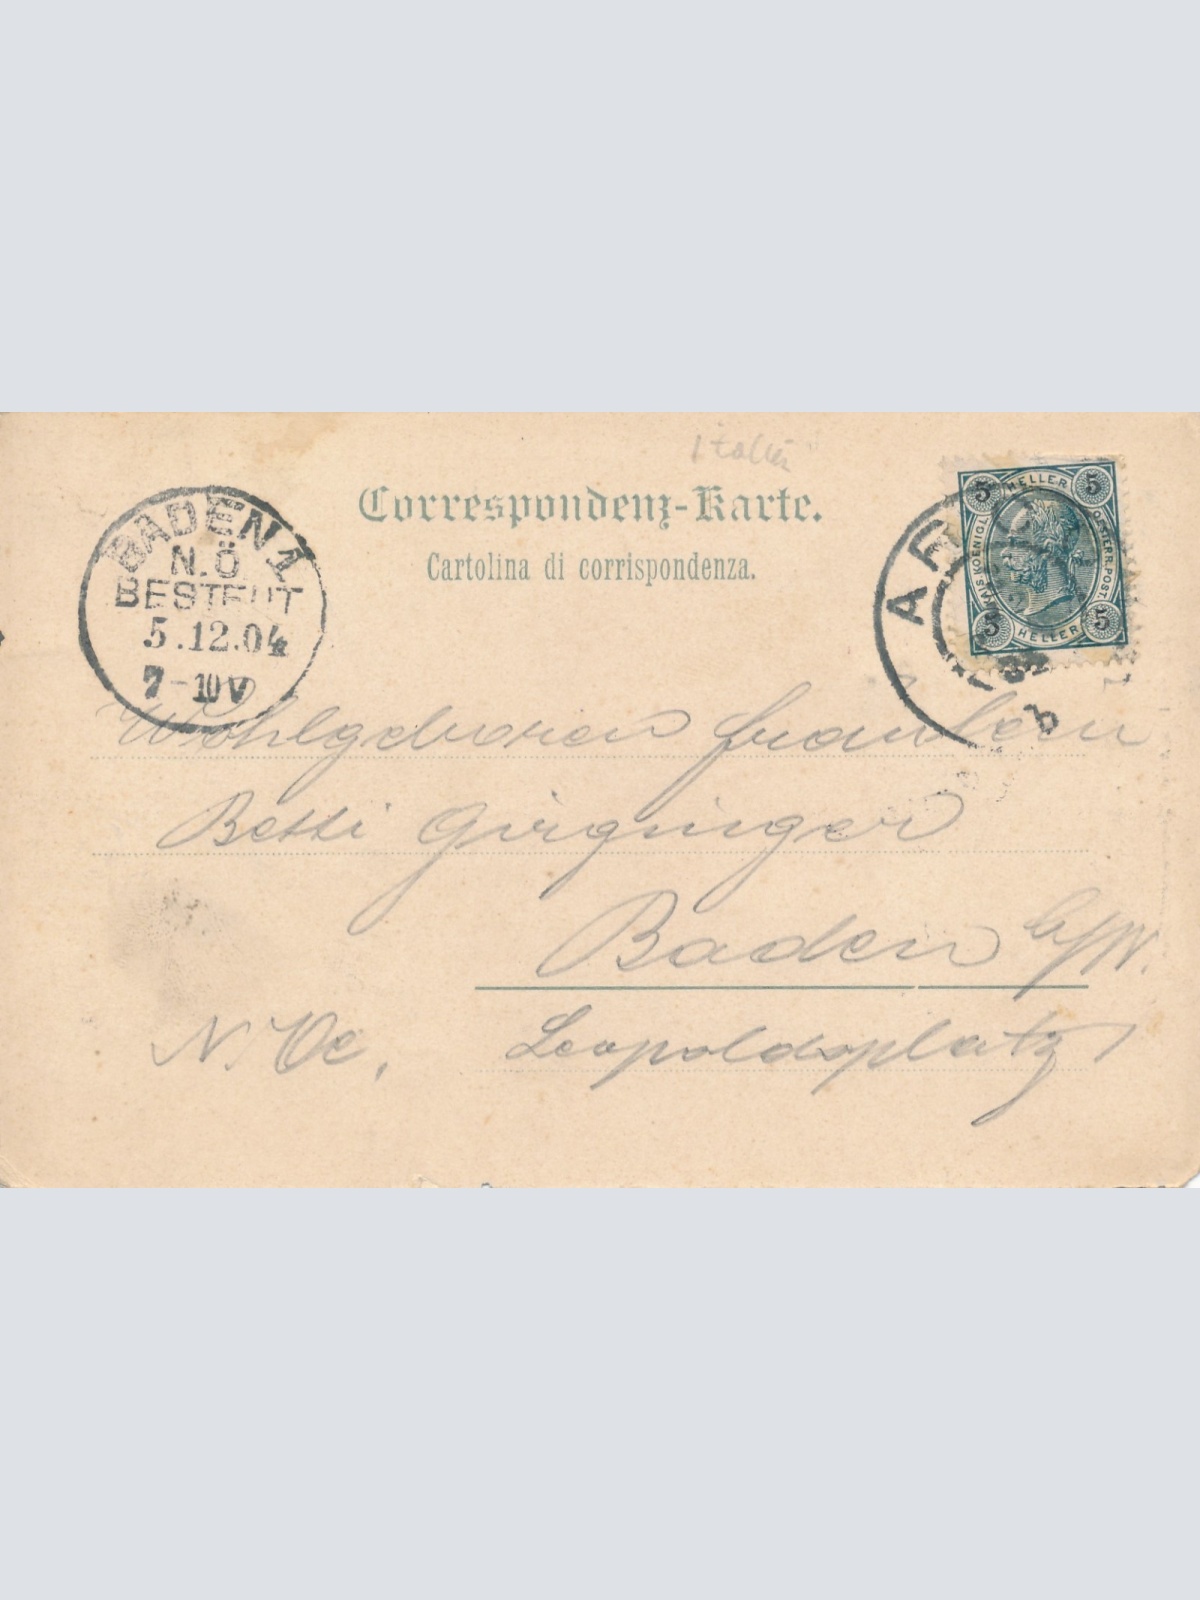 Italien
Correspondenz-Karte.
Cartolina di corrispondenza.
BADEN 1
N.Ö
BESTELLT
5.12.04
7-10V
5 HELLER 5
KAIS. KOENIGL. OESTERR. POST.
5 HELLER 5
AR
b
Wohlgeboren Fräulein
Betti Girgninger
Baden b/W.
N. Oe. Leopoldsplatz 1